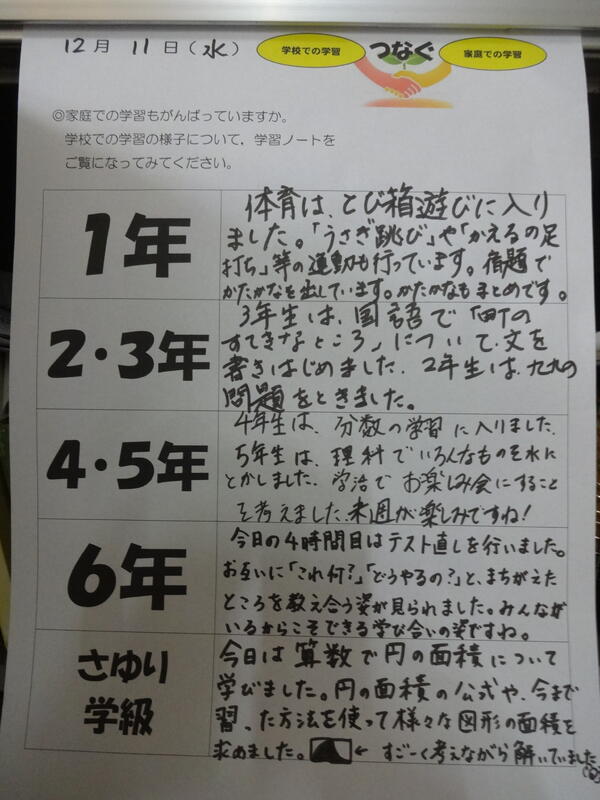 12月 11日(水)
学校での学習 つなぐ 家庭での学習
◎家庭での学習もがんばっていますか。
学校での学習の様子について，学習ノートを
ご覧になってみてください。
1年
体育は、とび箱遊びに入り
ました。「うさぎ跳び」や「かえるの足
打ち」等の運動も行っています。宿題で
かたかなを出しています。かたかなもまとめです。
2・3年
3年生は、国語で「町の
すてきなところ」について、文を
書きはじめました。2年生は、九九の
問題をときました。
4・5年
4年生は、分数の学習に入りました。
5年生は、理科でいろんなものを水に
とかしました。学活でお楽しみ会にすること
を考えました。来週が楽しみですね!
6年
今日の4時間目はテスト直しを行いました。
お互いに「これ何?」「どうやるの?」と、まちがえた
ところを教え合う姿が見られました。みんなが
いるからこそできる学び合いの姿ですね。
さゆり
学級
今日は算数で円の面積について
学びました。円の面積の公式や、今まで
習った方法を使って様々な図形の面積を
求めました。 ← すごーく考えながら解いていました